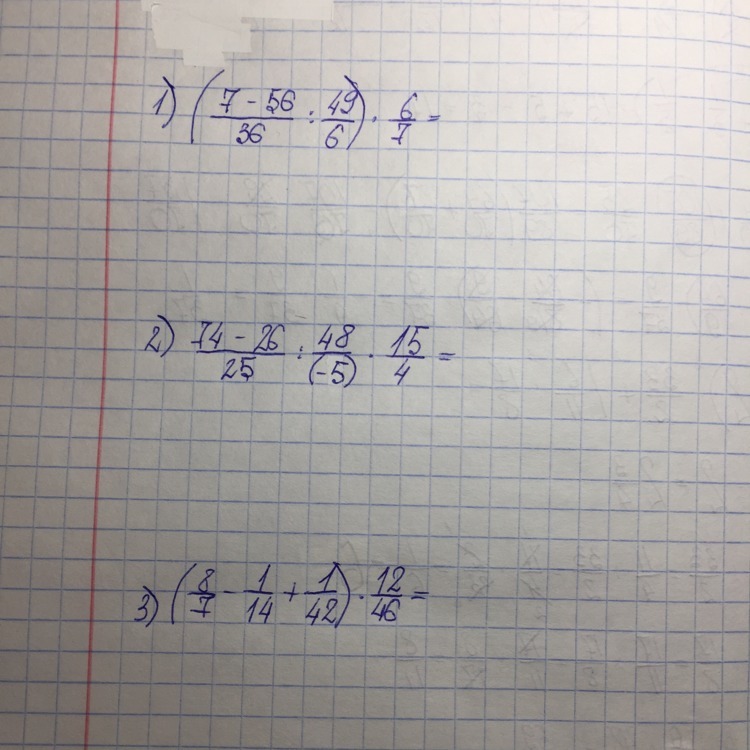 1) (7 - 56 / 36 : 49 / 6) · 6 / 7 =
2) 74 - 26 / 25 : 48 / (-5) · 15 / 4 =
3) (8 / 7 - 1 / 14 + 1 / 42) · 12 / 46 =